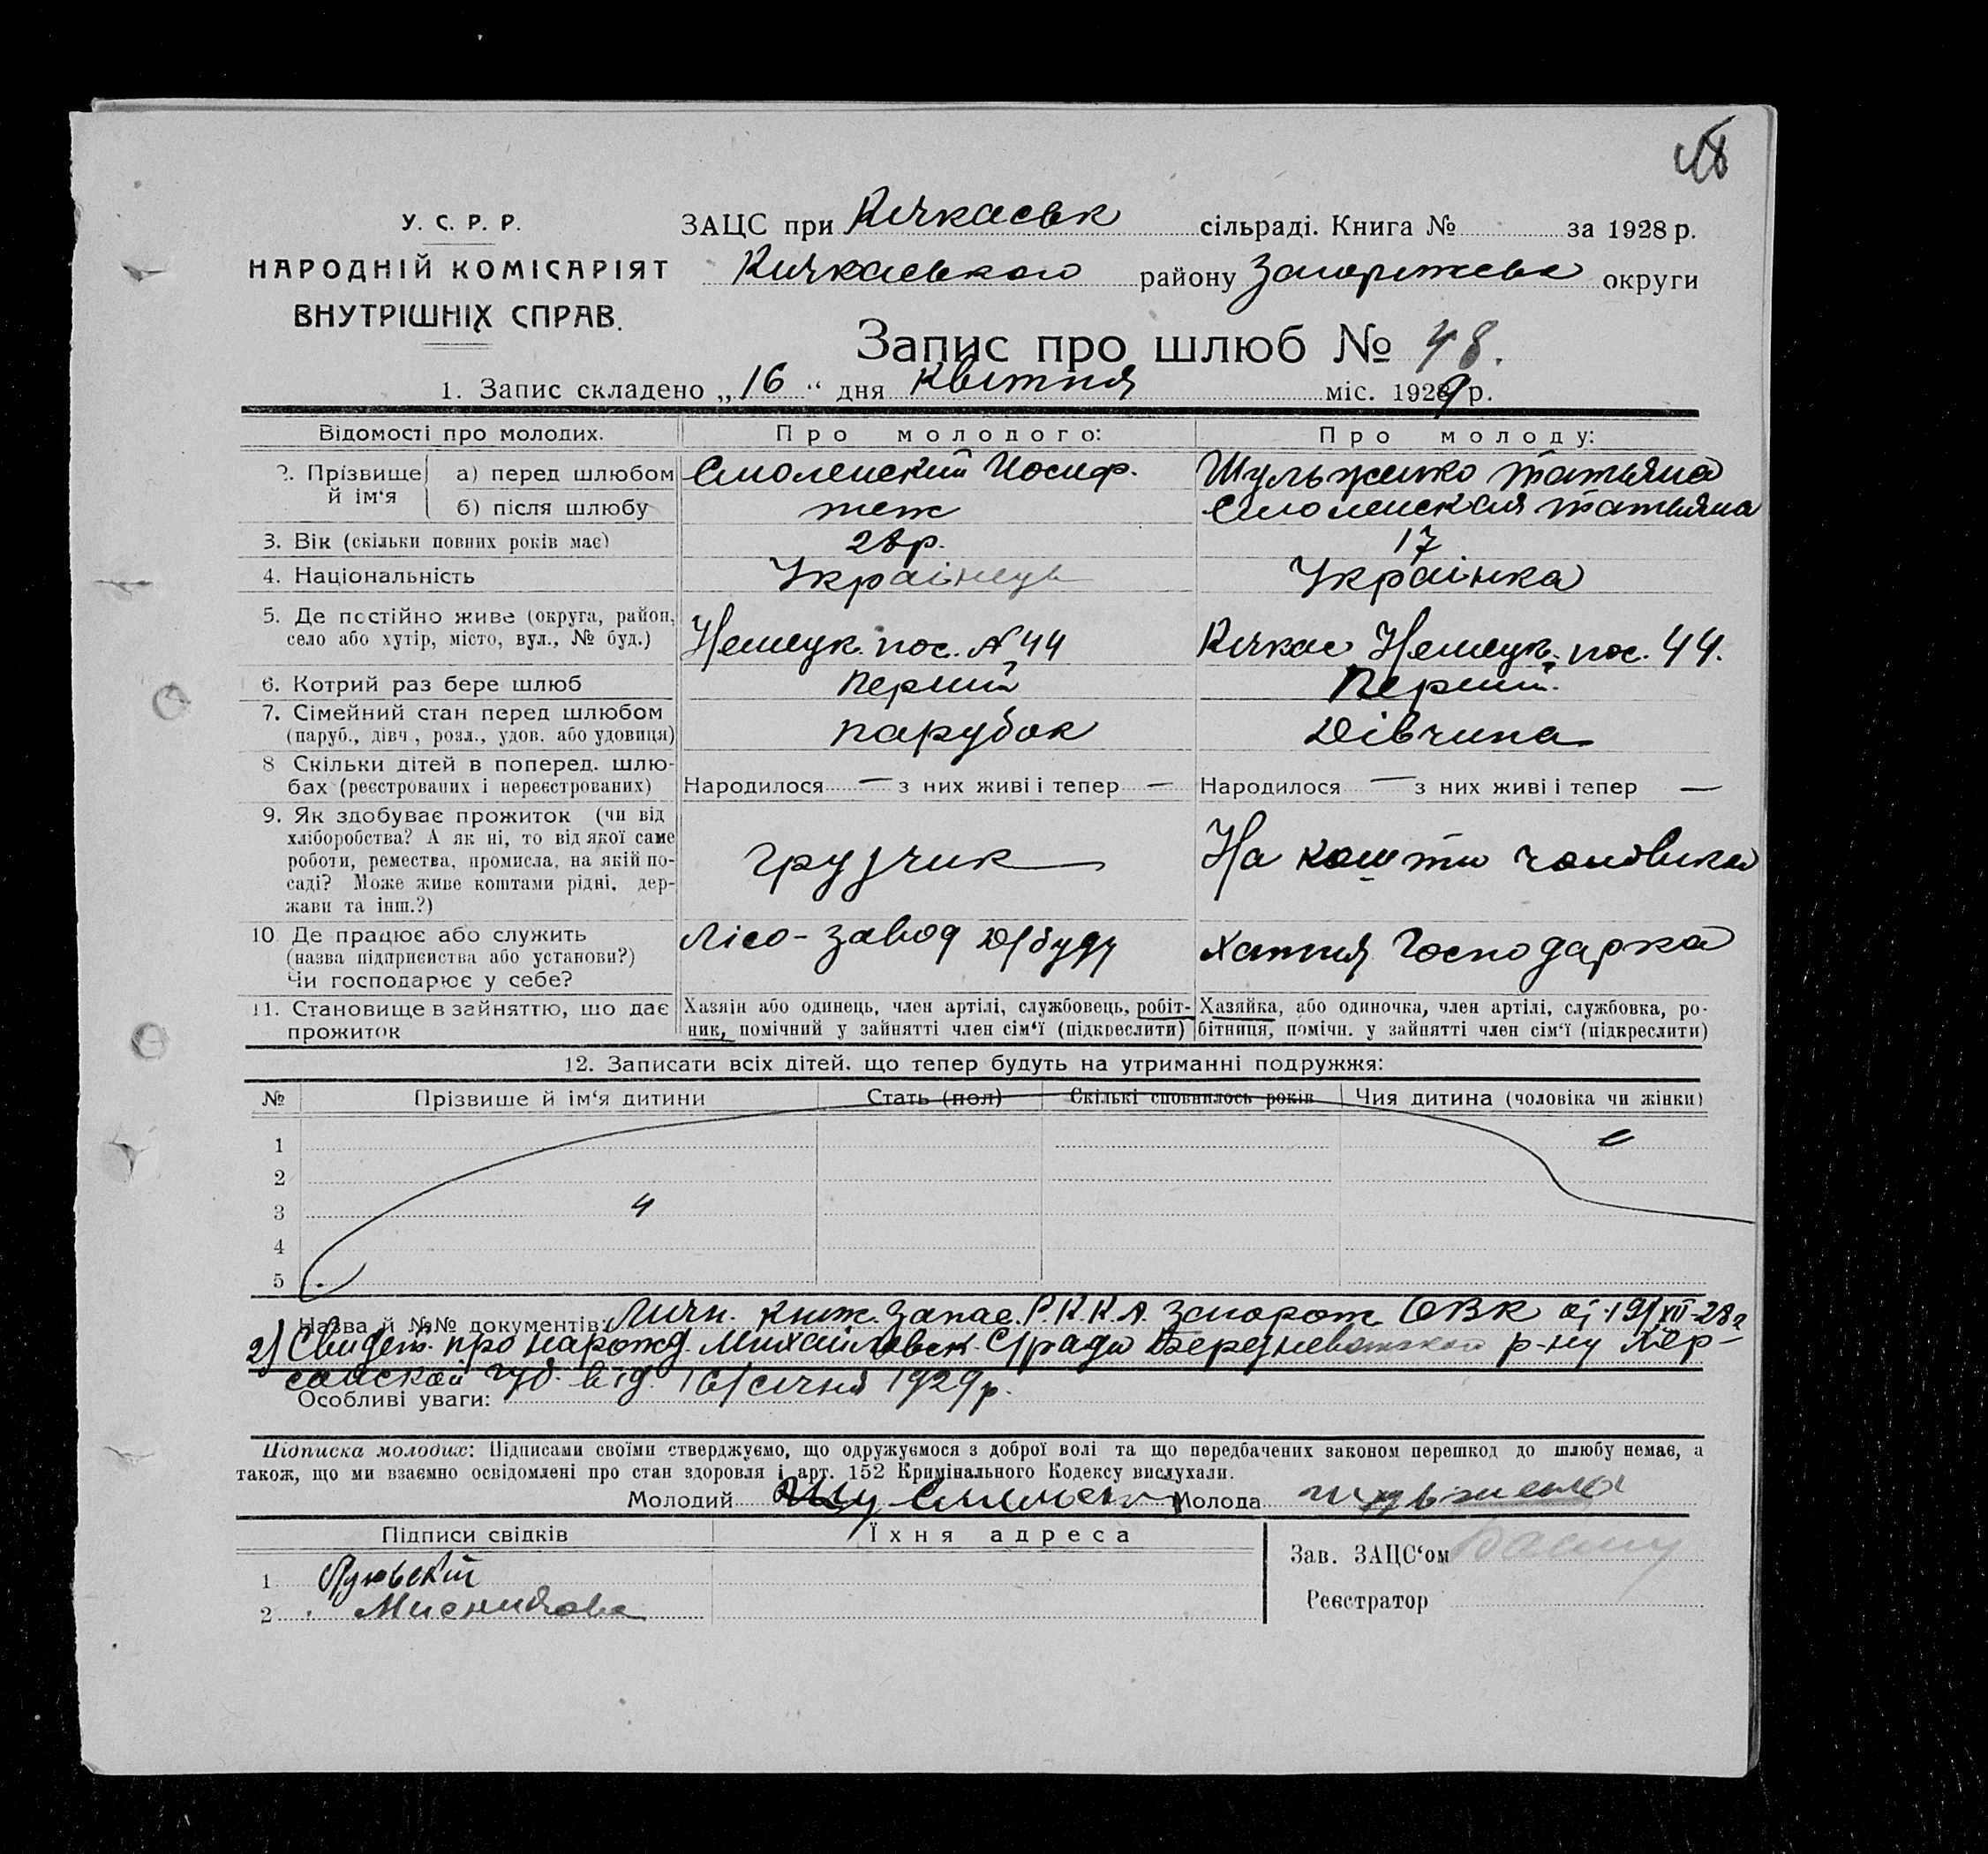 48
У. С. Р. Р.
НАРОДНІЙ КОМІСАРІЯТ
ВНУТРІШНІХ СПРАВ.
ЗАЦС при Кичкаськ сільраді. Книга № за 1928 р.
Кичкаського району Запоріжськ округи
Запис про шлюб № 48.
1. Запис складено „16“ дня квітня міс. 1929 р.
Відомості про молодих. Про молодого: Про молоду:
2. Прізвище й ім‘я а) перед шлюбом Смоленский Иосиф. Шульженко Татьяна
б) після шлюбу теж Смоленская Татьяна
3. Вік (скільки повних років має) р. 17
4. Національність Українець Українка
5. Де постійно живе (округа, район, село або хутір, місто, вул., № буд.) Немецк. пос. № 44 Кичкас Немецк. пос. 44.
6. Котрий раз бере шлюб Перший Перший.
7. Сімейний стан перед шлюбом (паруб., дівч., розл., удов. або удовиця) парубок Дівчина
8 Скільки дітей в поперед. шлюбах (реєстрованих і нереєстрованих) Народилося — з них живі і тепер — Народилося — з них живі і тепер —
9. Як здобуває прожиток (чи від хліборобства? А як ні, то від якої саме роботи, ремества, промисла, на якій посаді? Може живе коштами рідні, держави та інш.?) грузчик На кошти чоловіка
10 Де працює або служить (назва підприємства або установи?) Чи господарює у себе? Лісо-завод Д/буду хатня Господарка
11. Становище в зайняттю, що дає прожиток Хазяїн або одинець, член артілі, службовець, робітник, помічний у зайнятті член сім‘ї (підкреслити) Хазяйка, або одиночка, член артілі, службовка, робітниця, помічн. у зайнятті член сім‘ї (підкреслити)
12. Записати всіх дітей, що тепер будуть на утриманні подружжя:
№ Прізвише й ім‘я дитини Стать (пол) Скількі сповнилось років Чия дитина (чоловіка чи жінки)
1
2
3
4
5
Назва й №№ документів: Личн. книж. Запас. Р.К.К.А. Запорож ОВК от 19/XII-28 г
2) Свидет. про нарожд. Михайловск. С/ради Березневатской р-ну Хер-
сонской губ. від 16/січня 1929 р.
Особливі уваги:
Підписка молодих: Підписами своїми стверджуємо, що одружуємося з доброї волі та що передбачених законом перешкод до шлюбу немає, а
також, що ми взаємно освідомлені про стан здоровля і арт. 152 Кримінального Кодексу вислухали.
Молодий Молода Шульженко
Підписи свідків Їхня адреса
1
2
Зав. ЗАЦС‘ом
Реєстратор